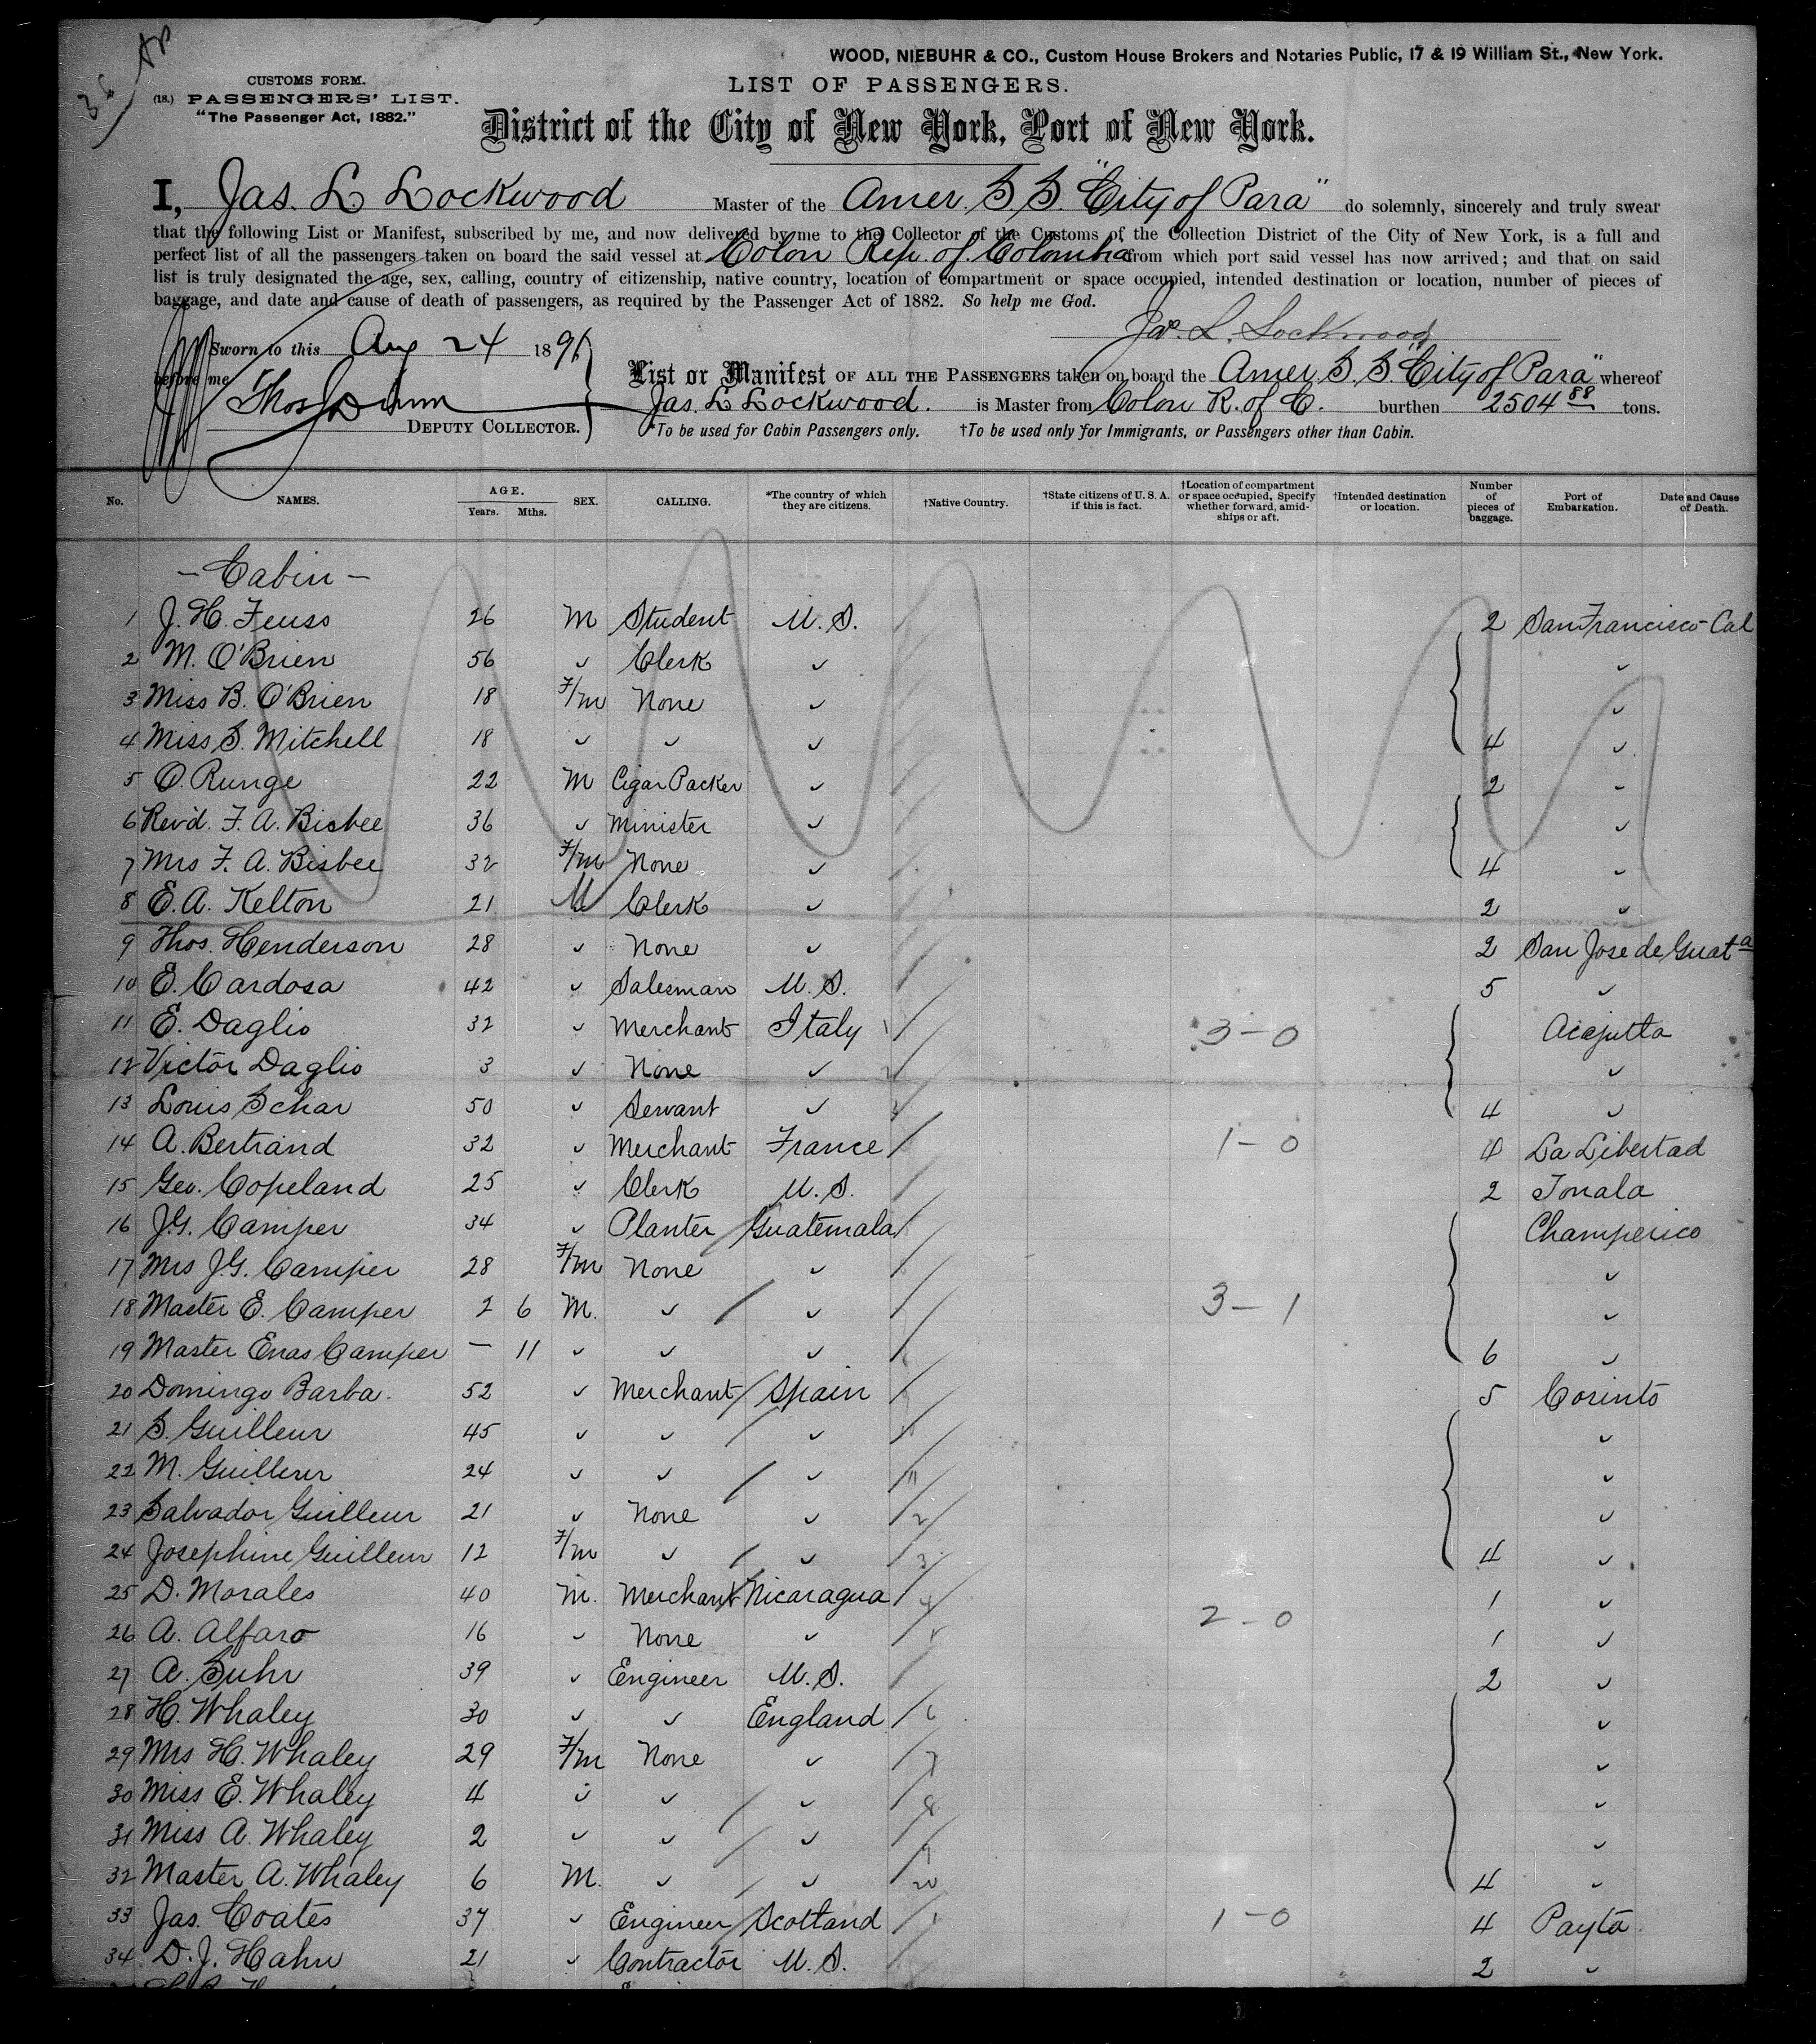 36 Ap
WOOD, NIEBUHR & CO., Custom House Brokers and Notaries Public, 17 & 19 William St., New York.
CUSTOMS FORM.
(18.) PASSENGERS' LIST.
"The Passenger Act, 1882."
LIST OF PASSENGERS.
District of the City of New York, Port of New York.
I, Jas. L Lockwood Master of the Amer. S. S. "City of Para" do solemnly, sincerely and truly swear
that the following List or Manifest, subscribed by me, and now delivered by me to the Collector of the Customs of the Collection District of the City of New York, is a full and
perfect list of all the passengers taken on board the said vessel at Colon Rep. of Colombia from which port said vessel has now arrived; and that on said
list is truly designated the age, sex, calling, country of citizenship, native country, location of compartment or space occupied, intended destination or location, number of pieces of
baggage, and date and cause of death of passengers, as required by the Passenger Act of 1882. So help me God.
Jas. L. Lockwood
Sworn to this Aug 24 1891
before me
DEPUTY COLLECTOR.
List or Manifest OF ALL THE PASSENGERS taken on board the Amer. S. S. "City of Para" whereof
Jas. L Lockwood. is Master from Colon R. of C. burthen 2504 88 tons.
*To be used for Cabin Passengers only. †To be used only for Immigrants, or Passengers other than Cabin.
No. NAMES. AGE. Years. Mths. SEX. CALLING. *The country of which they are citizens. †Native Country. †State citizens of U. S. A. if this is fact. †Location of compartment or space occupied, Specify whether forward, amidships or aft. †Intended destination or location. Number of pieces of baggage. Port of Embarkation. Date and Cause of Death.
- Cabin -
1 J. H. Feuss 26 M Student U. S. 2 San Francisco-Cal
2 M. O'Brien 56 ✓ Clerk ✓ ✓
3 Miss B. O'Brien 18 F/m None ✓ ✓
4 Miss S. Mitchell 18 ✓ ✓ ✓ 4 ✓
5 O. Runge 22 M Cigar Packer ✓ 2 ✓
6 Rev'd. F. A. Bisbee 36 ✓ Minister ✓ ✓
7 Mrs F. A. Bisbee 32 F/m None ✓ 4 ✓
8 E. A. Kelton 21 M Clerk ✓ 2 ✓
9 Thos. Henderson 28 ✓ None ✓ 2 San Jose de Guata
10 E. Cardosa 42 ✓ Salesman U. S. 5 ✓
11 E. Daglio 32 ✓ Merchant Italy 1 3-0 Acajutla
12 Victor Daglio 3 ✓ None ✓ 2 ✓
13 Louis Schar 50 ✓ Servant ✓ 3 4 ✓
14 A. Bertrand 32 ✓ Merchant France 1-0 4 La Libertad
15 Geo. Copeland 25 ✓ Clerk U. S. 2 Tonala
16 J. G. Camper 34 ✓ Planter Guatemala Champerico
17 Mrs J. G. Camper 28 F/m None ✓ ✓
18 Master E. Camper 2 6 M. ✓ ✓ 3-1 ✓
19 Master Enas Camper - 11 ✓ ✓ ✓ 6 ✓
20 Domingo Barba. 52 ✓ Merchant Spain 5 Corinto
21 S. Guilleur 45 ✓ ✓ ✓ ✓
22 M. Guilleur 24 ✓ ✓ ✓ 11 ✓
23 Salvador Guilleur 21 ✓ None ✓ 2 ✓
24 Josephine Guilleur 12 F/m ✓ ✓ 3 4 ✓
25 D. Morales 40 M. Merchant Nicaragua 4 1 ✓
26 A. Alfaro 16 ✓ None ✓ 5 2-0 1 ✓
27 A. Suhr 39 ✓ Engineer U. S. 2 ✓
28 H. Whaley 30 ✓ ✓ England 6 ✓
29 Mrs H. Whaley 29 F/m None ✓ 7 ✓
30 Miss E. Whaley 4 ✓ ✓ ✓ 8 ✓
31 Miss A. Whaley 2 ✓ ✓ ✓ 9 ✓
32 Master A. Whaley 6 M. ✓ ✓ 20 4 ✓
33 Jas. Coates 37 ✓ Engineer Scotland 1 1-0 4 Payta
34 D. J. Hahn 21 ✓ Contractor U. S. 2 ✓